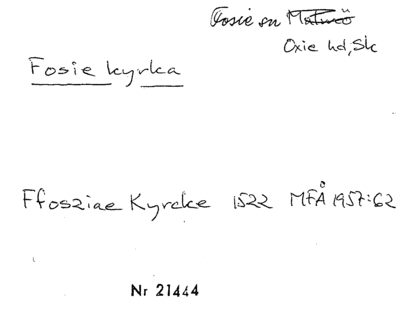 Fosie sn Malmö
Oxie hd, Sk
Fosie kyrka
Ffosziae Kyrcke 1522 MFÅ 1957:62
Nr 21444